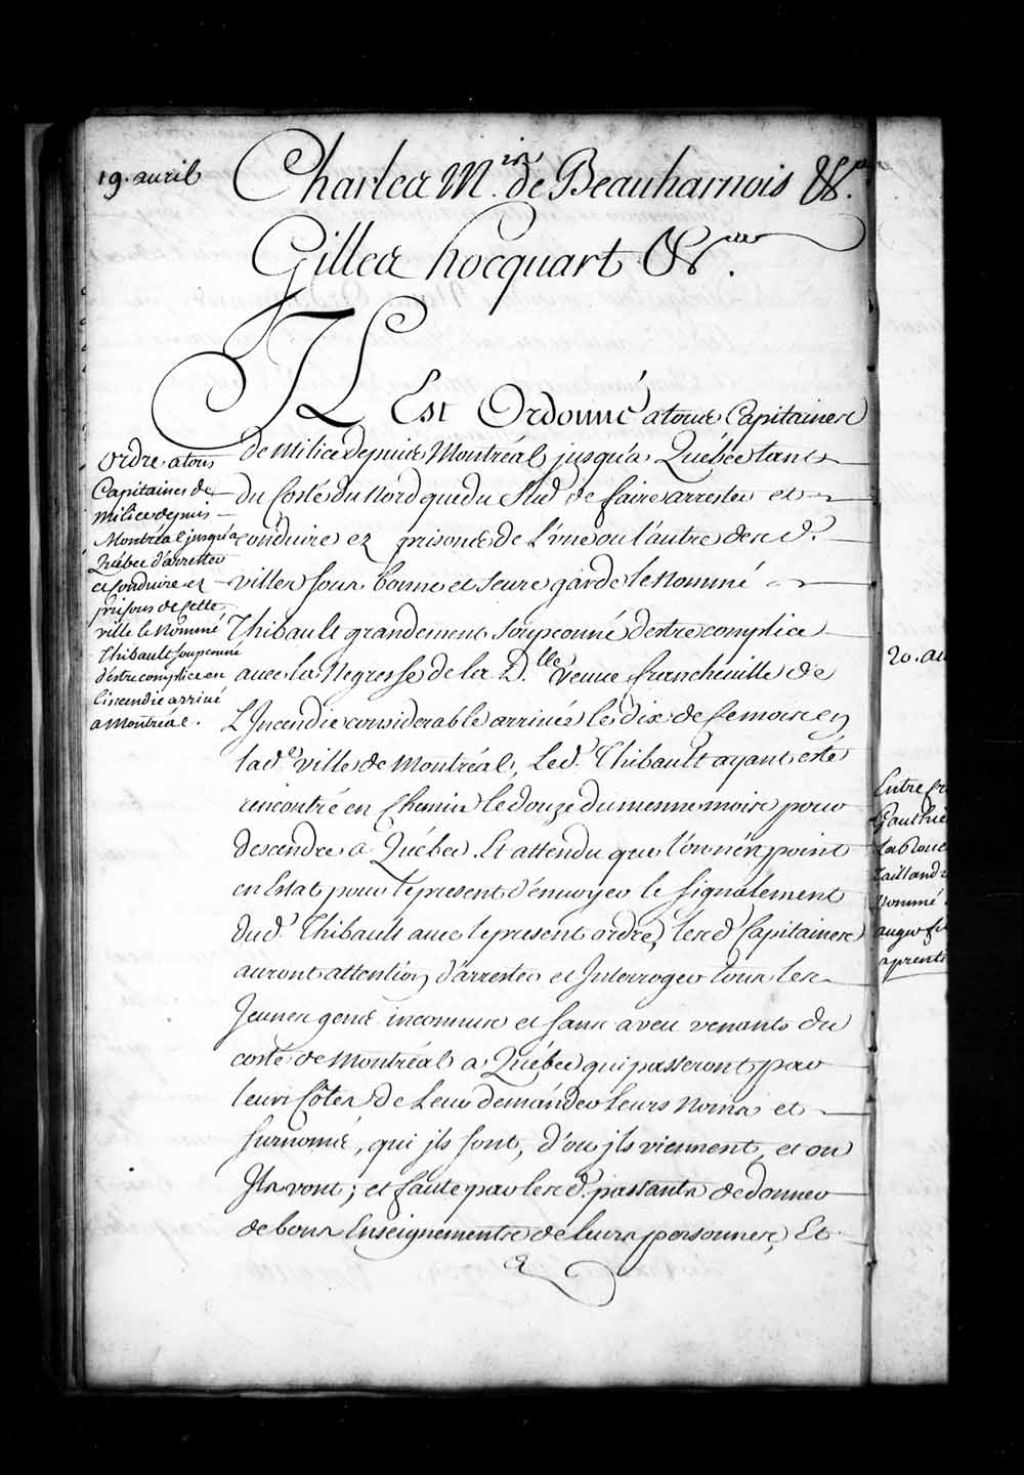 19. avril
Charles M.is de Beauharnois &c.
Gilles hocquart &c.
IL Est Ordonné a tous Capitaines
de Milice depuis Montréal jusqu'a Québec tant
du Costé du Nord que du Sud de faire arrester et
conduire ez prisons de L'une ou l'autre desd.
villes sous bonne et seure garde le Nommé
Thibault grandement soupconné destre complice
avec la Negresse de la D.lle veuve francheville de
L'Incendie considerable arrivée le dix de ce mois en
lad.e ville de Montréal, Led. Thibault ayant esté
rencontré en Chemin le douze du mesme mois pour
descendre a Québec. Et attendu que l'on n'en point
en Estat pour le present d'envoyer le signalement
dud. Thibault avec le present ordre, lesd. Capitaines
auront attention d'arrester et Interroger tous les
Jeunes gens inconnus et sans aveu venants du
costé de Montréal a Québec qui passeront par
leurs Côtes, de Leur demander leurs Noms et
surnoms, qui ils sont, d'ou ils viennent, et ou
Ils vont; et faute par lesd. passants de donner
de bons Enseignements de leurs personnes, Et
ordre a tous
Capitaines de
Milice depuis
Montréal jusqu'a
Québec d'arrester
et conduire ez
prisons de Cette
ville le Nommé
Thibault soupconné
d'estre complice en
l'incendie arrivé
a Montréal.
20. av
Entre fr
Gauthie
Taillandi
Nommé
auger
aprenti